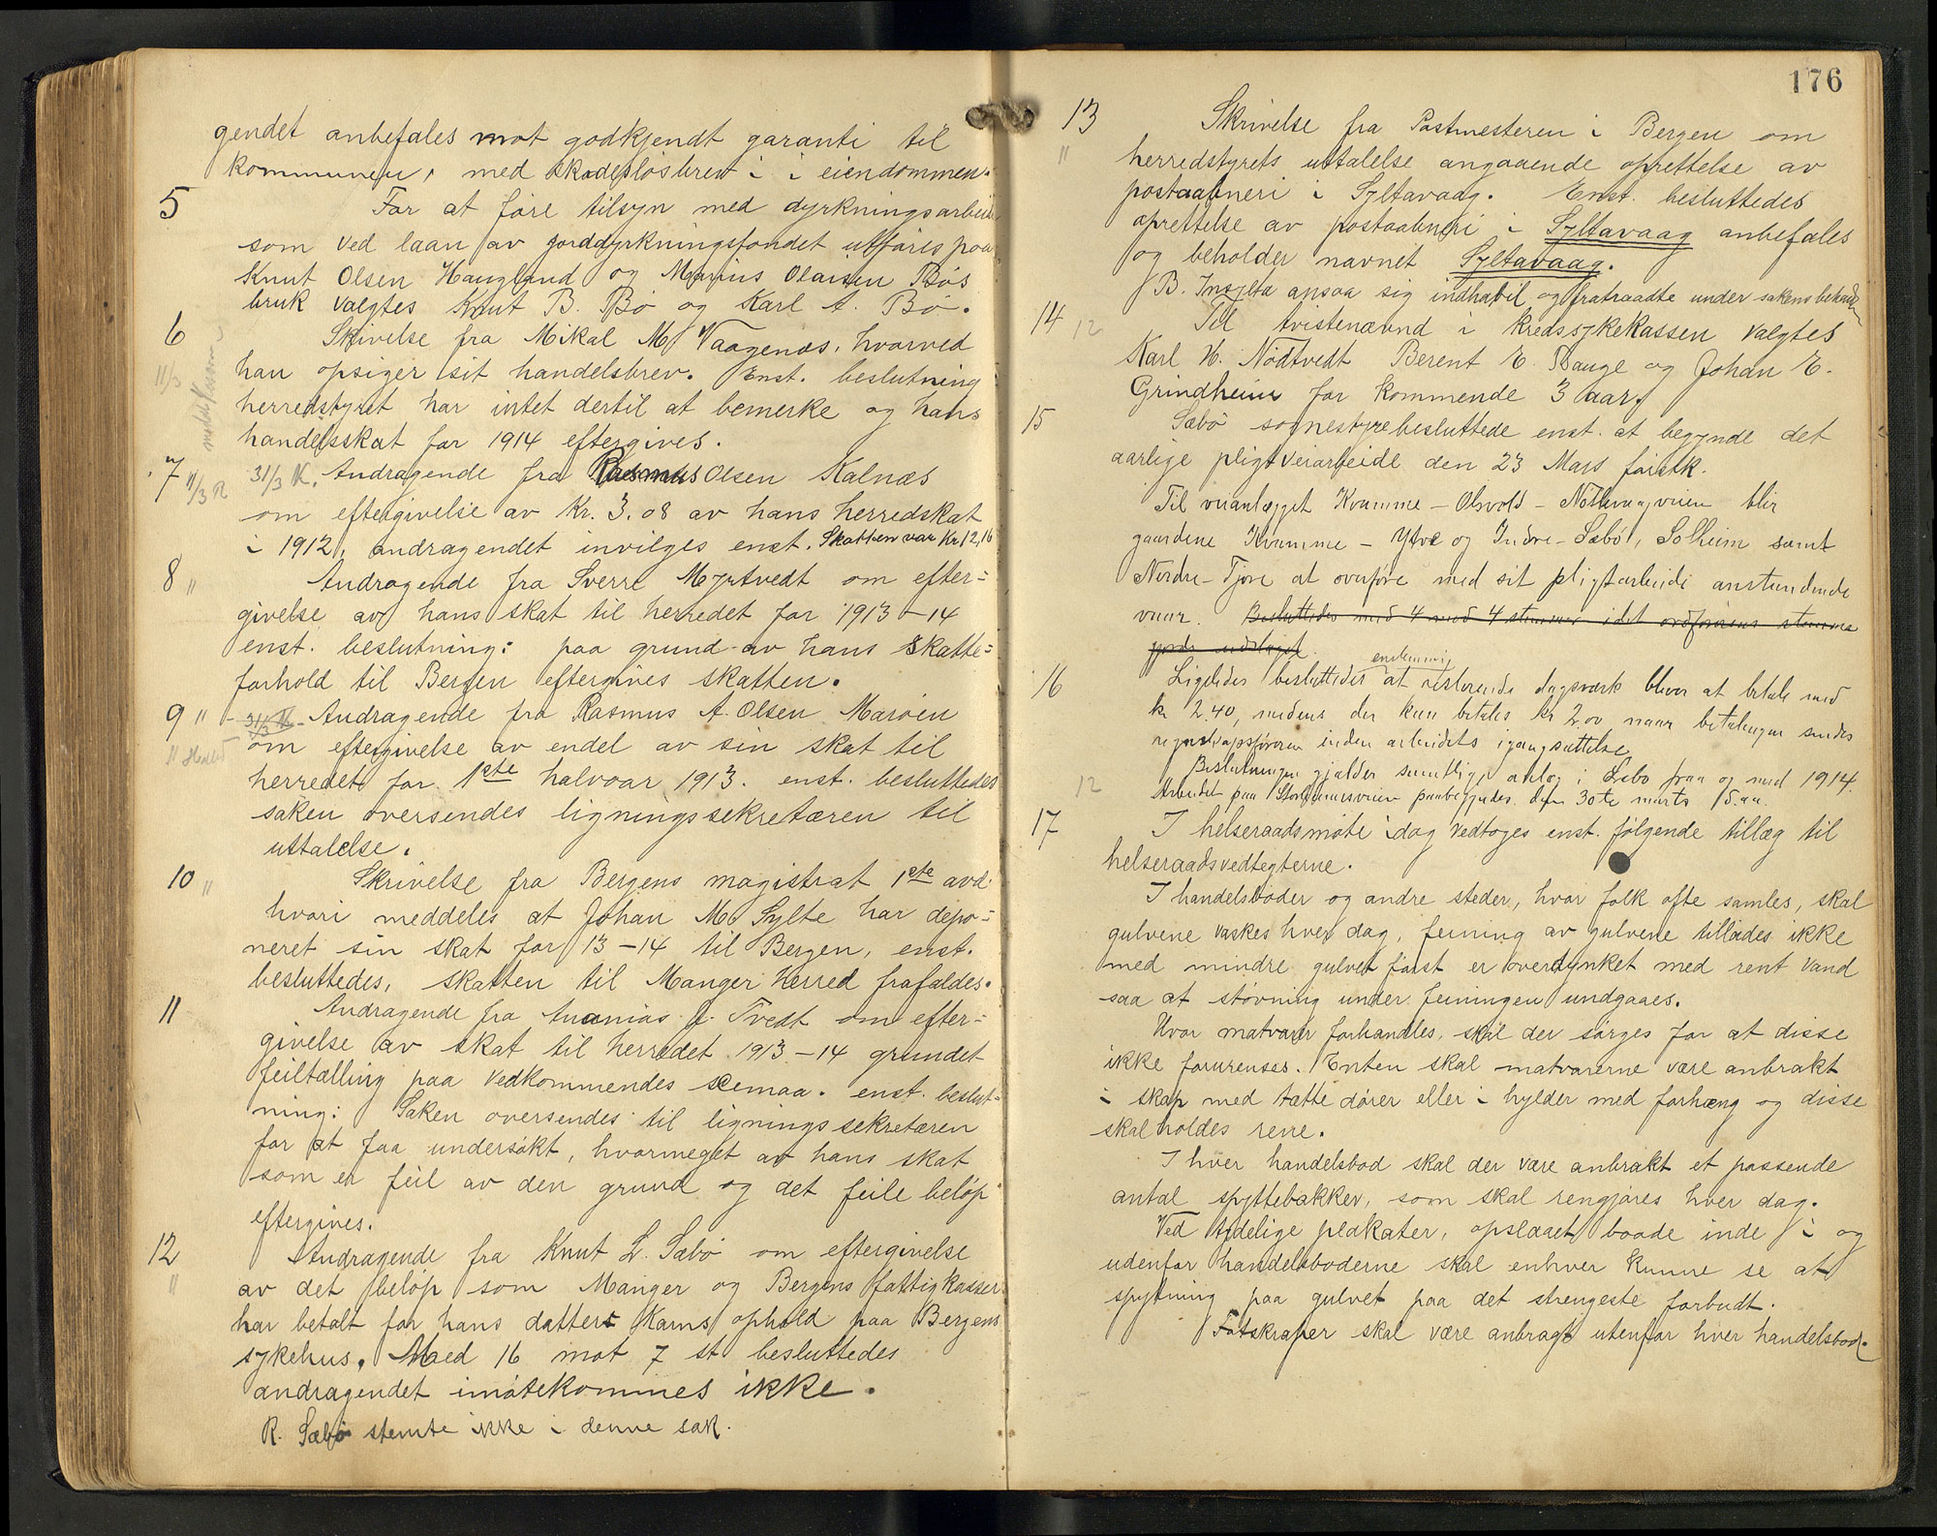 gendet anbefales mot godkjendt garanti til
kommunen, med skadesløsbrev i eiendommen.
5 For at føre tilsyn med dyrkningsarbeide
som ved laan av jorddyrkningsfondet utføres paa
Knut Olsen Haugland og Marius Olaisen Bøs
bruk valgtes Knut B. Bø og Karl A. Bø.
6 Skivelse fra Mikal M. Vaagenæs, hvorved
11/3 han opsiger sit handelsbrev. Enst. beslutning
herredstyret har intet dertil at bemerke og hans
handelsskat for 1914 eftergives.
7 11/3 R 31/3 K. Andragende fra Rasmus Olsen Kalnæs
om eftergivelse av Kr. 3.08 av hans herredskat
i 1912, andragendet invilges enst. Skatten var Kr 12,16
8 " Andragende fra Sverre Myrtvedt om efter=
givelse av hans skat til herredet for 1913-14
enst. beslutning: paa grund av hans skatte=
forhold til Bergen eftergives skatten.
9 " 31/3 K. Andragende fra Rasmus A. Olsen Marøen
om eftergivelse av endel av sin skat til
herredet for 1ste halvaar 1913. enst. besluttedes
saken oversendes ligningssekretæren til
uttalelse.
10 " Skrivelse fra Bergens magistrat 1ste avd.
hvori meddeles at Johan M. Sylte har depo=
neret sin skat for 13-14 til Bergen, enst.
besluttedes, skatten til Manger Herred frafaldes.
11 Andragende fra Ananias J. Tvedt om efter=
givelse av skat til herredet 1913-14 grundet
feiltælling paa vedkommendes scemaa. enst. beslut=
ning: Saken oversendes til ligningssekretæren
for at faa undersøkt, hvormeget av hans skat
som er feil av den grund og det feile beløp
eftergives.
12 Andragende fra Knut L. Sæbø om eftergivelse
" av det beløp som Manger og Bergens fattigkasser
har betalt for hans datters Karns ophold paa Bergens
sykehus. Med 16 mot 7 st besluttedes
andragendet imøtekommes ikke.
R. Sæbø stemte ikke i denne sak.
176
13 Skrivelse fra Postmesteren i Bergen om
" herredstyrets uttalelse angaaende oprettelse av
postaabneri i Syltavaag. Enst. besluttedes
oprettelse av postaabneri i Syltavaag anbefales
og beholder navnet Syltavaag.
B. Insylta ansaa sig indhabil og fratraadte under sakens behandl
14 12 Til tvistenævnd i kredssykekassen valgtes
Karl H. Nødtvedt Berent E. Bauge og Johan E.
Grindheim for kommende 3 aar.
15 Sæbø sognestyre besluttede enst. at begynde det
aarlige pligtveiarbeide den 23 Mars førstk.
Til veianlægget Kvamme - Olsvold - veien blir
gaardene Kvamme - Ytre og Indre-Sæbø, Solheim samt
Nordre-Tjore at overføre med sit pligtarbeide anstundende
vaar. Besluttedes med 4 mod 4 stemmer idet ordførerens stemme
gjorde udslaget.
enstemmig
16 Ligeledes besluttedes at resterende dagsværk bliver at betale med
kr 2.40, medens der kun betales kr 2.00 naar betalingen sendes
regnskapsføreren inden arbeidets igangsættelse.
Beslutningen gjælder samtlige anlæg i Sæbø fra og med 1914.
12 Arbeidet paa paabegyndes den 30te marts d.aa.
17 I helseraadsmøte idag vedtoges enst. følgende tillæg til
helseraadsvedtegterne.
I handelsboder og andre steder, hvor folk ofte samles, skal
gulvene vaskes hver dag, feining av gulvene tillades ikke
med mindre gulvet først er overdynket med rent vand
saa at støvning under feiningen undgaaes.
Hvor matvarer forhandles, skal der sørges for at disse
ikke forurenses. Enten skal matvarerne være anbrakt
i skap med tætte dører eller i hylder med forhæng og disse
skal holdes rene.
I hver handelsbod skal der være anbrakt et passende
antal spyttebakker, som skal rengjøres hver dag.
Ved tydelige plakater, opslaaet baade inde i og
udenfor handelsboderne skal enhver kunne se at
spytning paa gulvet paa det strengeste forbudt.
Fotskraper skal være anbragt utenfor hver handelsbod.